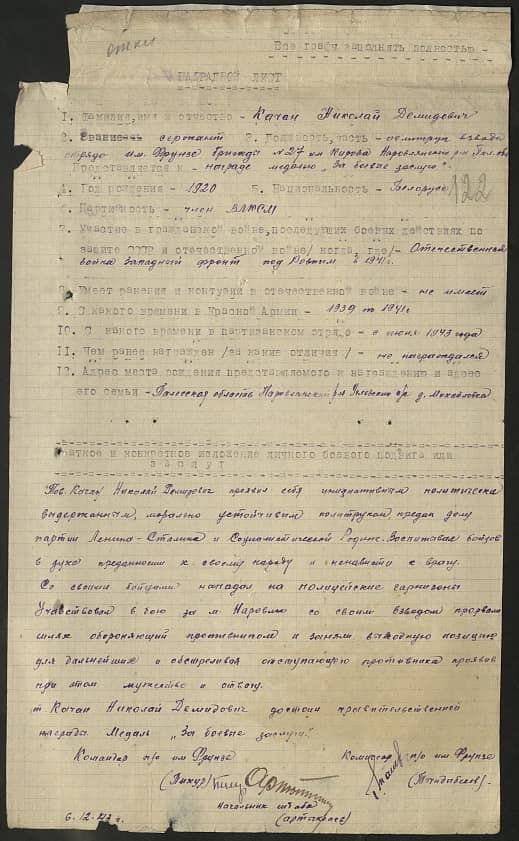 Все графы заполнять полностью -
НАГРАДНОЙ ЛИСТ
1. Фамилия, имя и отчество - Качан Николай Демидович
2. Звание - сержант 3. Должность, часть - политрук взвода
отряда им. Фрунзе бригады №27 им Кирова Наровлянский р-н
Представляется к - награде медалью „За боевые заслуги".
4. Год рождения - 1920 5. Национальность - Беларус
122
6. Партийность - член ВЛКСМ
7. Участие в гражданской войне, последующих боевых действиях по
защите СССР и отечественной войне /когда, где/ - Отечественная
война Западный фронт под Ровным в 1941 г.
8. Имеет ранения и контузии в отечественной войне - не имеет
9. С какого времени в Красной Армии - 1939 по 1941 г
10. С какого времени в партизанском отряде - с июня 1943 года
11. Чем ранее награжден /за какие отличия/ - не награждался
12. Адрес места рождения представляемого к награждению и адрес
его семьи - Полесская область Наровлянский р/н с/с д. Михайловка
Краткое и конкретное изложение личного боевого подвига или
заслуг
Тов. Качан Николай Демидович проявил себя инициативным политически
выдержанным, морально устойчивым политруком, предан делу
партии Ленина-Сталина и Социалистической Родине. Воспитывае бойцов
в духе преданности к своему народу и ненависти к врагу.
Со своими бойцами нападал на полицейские гарнизоны
Участвовал в бою за м. Наровлю со своим взводом прорвал
шлях обороняющий противником и занял выгодную позицию
для дальнейших и обстреливал отступающего противника проявив
при этом мужество и отвагу.
т. Качан Николай Демидович достоин правительственной
награды Медаль „За боевые заслуги".
Командир п/о им Фрунзе Комиссар п/о им Фрунзе
Начальник штаба
6.12.43 г.